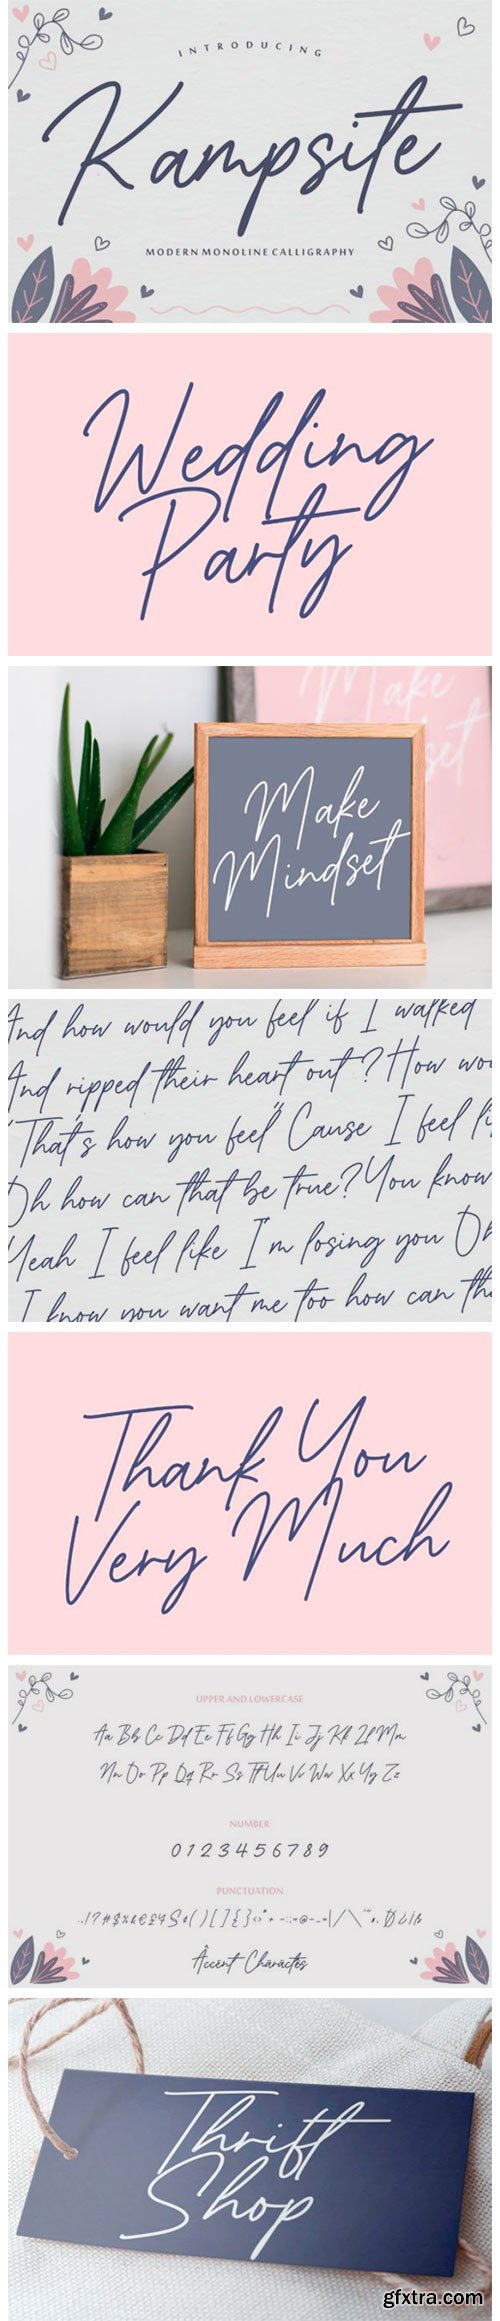 INTRODUCING
Kampsite
MODERN MONOLINE CALLIGRAPHY
Wedding
Party
Make
Mindset
Make
Mindset
And how would you feel if I walked
And ripped their heart out? How wou
"That's how you feel" Cause I feel li
Oh how can that be true? You know
Yeah I feel like I'm losing you Oh
I know you want me too how can tha
Thank You
Very Much
UPPER AND LOWERCASE
Aa Bb Cc Dd Ee Ff Gg Hh Ii Jj Kk Ll Mm
Nn Oo Pp Qq Rr Ss Tt Uu Vv Ww Xx Yy Zz
NUMBER
0 1 2 3 4 5 6 7 8 9
PUNCTUATION
Âccënt Charàctès
Thrift
Shop
gfxtra.com